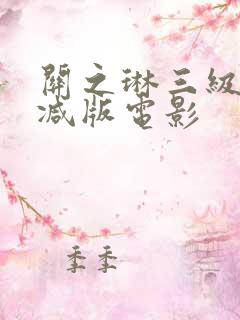 關之琳三級
减版電影
季季